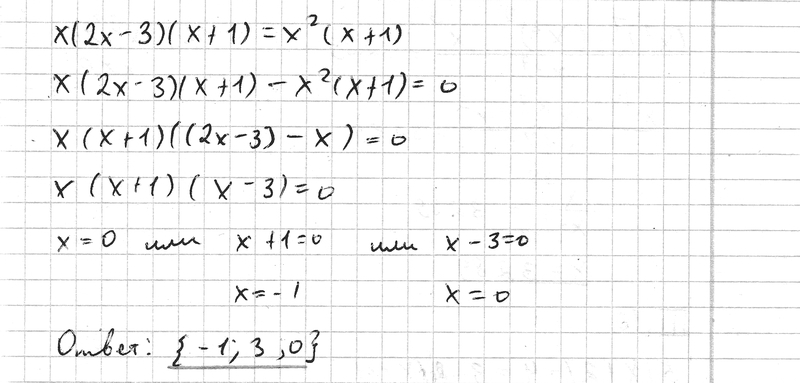 x(2x-3)(x+1)=x²(x+1)
x(2x-3)(x+1)-x²(x+1)=0
x(x+1)((2x-3)-x)=0
x(x+1)(x-3)=0
x=0 или x+1=0 или x-3=0
x=-1 x=0
Ответ: {-1; 3, 0}